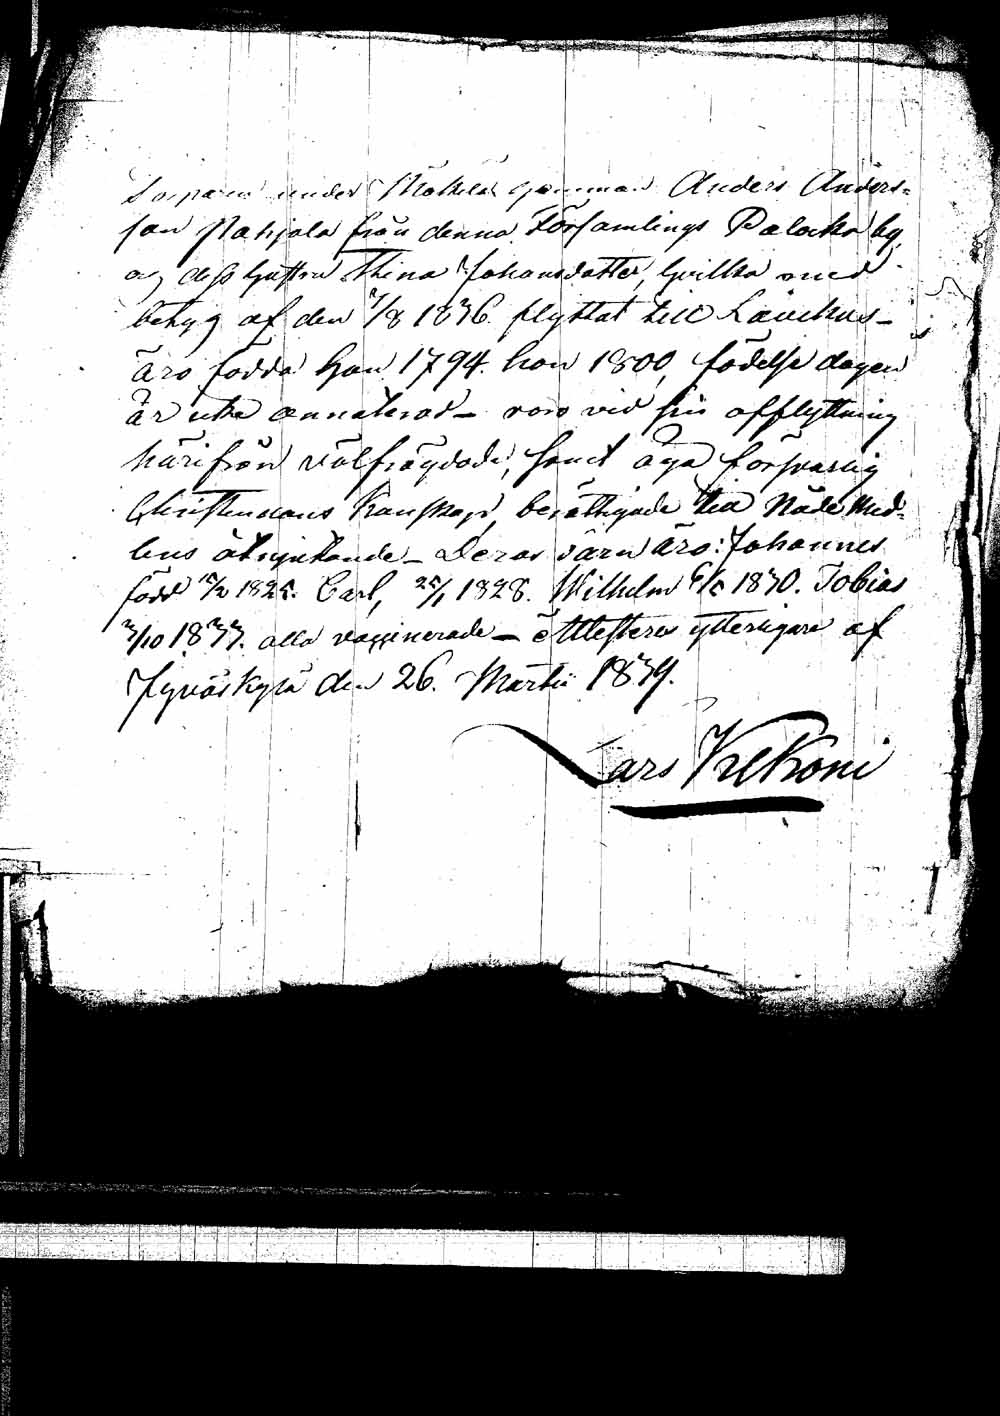 Torparen under Mäkelä hemman Anders Anders=
son Pohjola från denna Församlings Palocka by,
och dess hustru Thina Johansdotter, hvilka med
betyg af den 7/8 1836. flyttat till Laukas_
äro födda han 1794. hon 1800, födelse dagen
är icke annoterad_ voro vid sin afflyttning
härifrån välfrägdade, samt äga försvarlig
Christendoms Kunskap, berättigade till Nåde Med=
lens åtnjutande_ Deras barn äro: Johannes
född 15/2 1825. Carl, 25/1 1828. Wilhelm 6/5 1830. Tobias
3/10 1833. alla vaccinerade_ attesteres ytterligare af
Jyväskylä den 26. Martii 1839.
Lars Kekoni